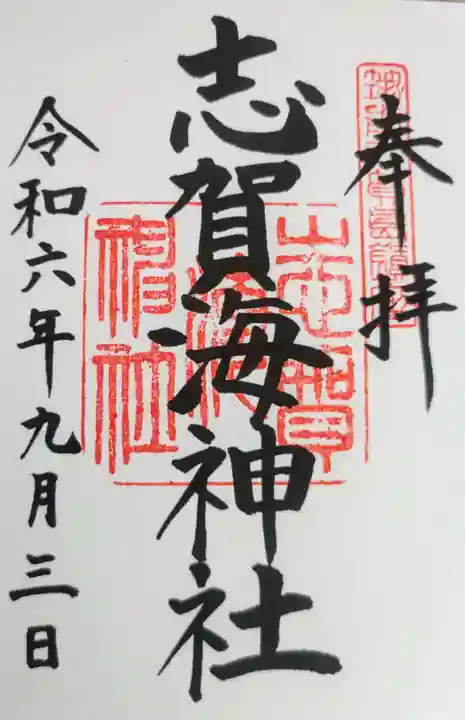 奉拝
志賀海神社
令和六年九月三日
志賀
海
神社